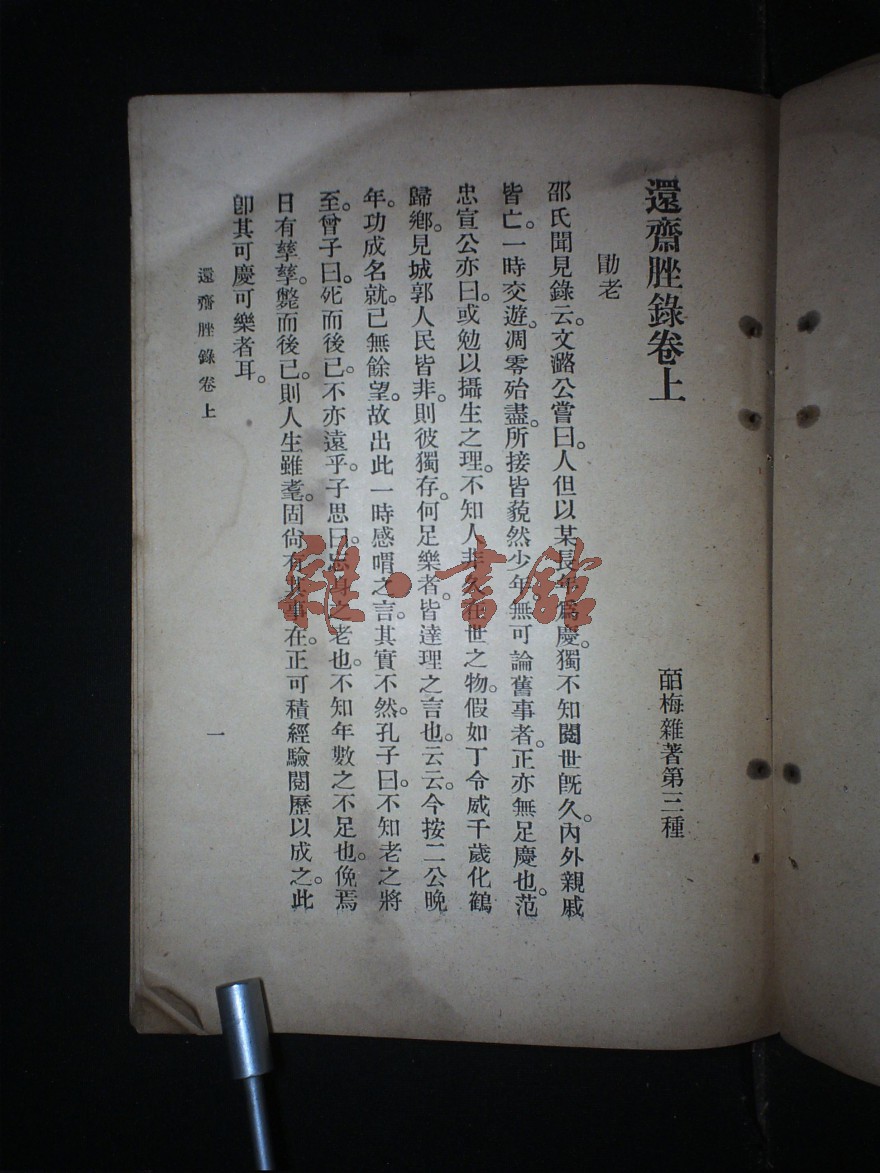 還齋脞錄卷上
皕梅雜著第三種
勖老
邵氏聞見錄云。文潞公嘗曰。人但以某長年爲慶。獨不知閱世旣久。內外親戚
皆亡。一時交遊。凋零殆盡。所接皆藐然少年。無可論舊事者。正亦無足慶也。范
忠宣公亦曰。或勉以攝生之理。不知人非久在世之物。假如丁令威千歲化鶴
歸鄉。見城郭人民皆非。則彼獨存。何足樂者。皆達理之言也。云云。今按二公晚
年。功成名就。已無餘望。故出此一時感喟之言。其實不然。孔子曰。不知老之將
至。曾子曰。死而後已。不亦遠乎。子思曰。忘身之老也。不知年數之不足也。俛焉
日有孳孳。斃而後已。則人生雖耄。固尙有其事在。正可積經驗閱歷以成之。此
卽其可慶可樂者耳。
還齋脞錄卷上
一
雜·書館